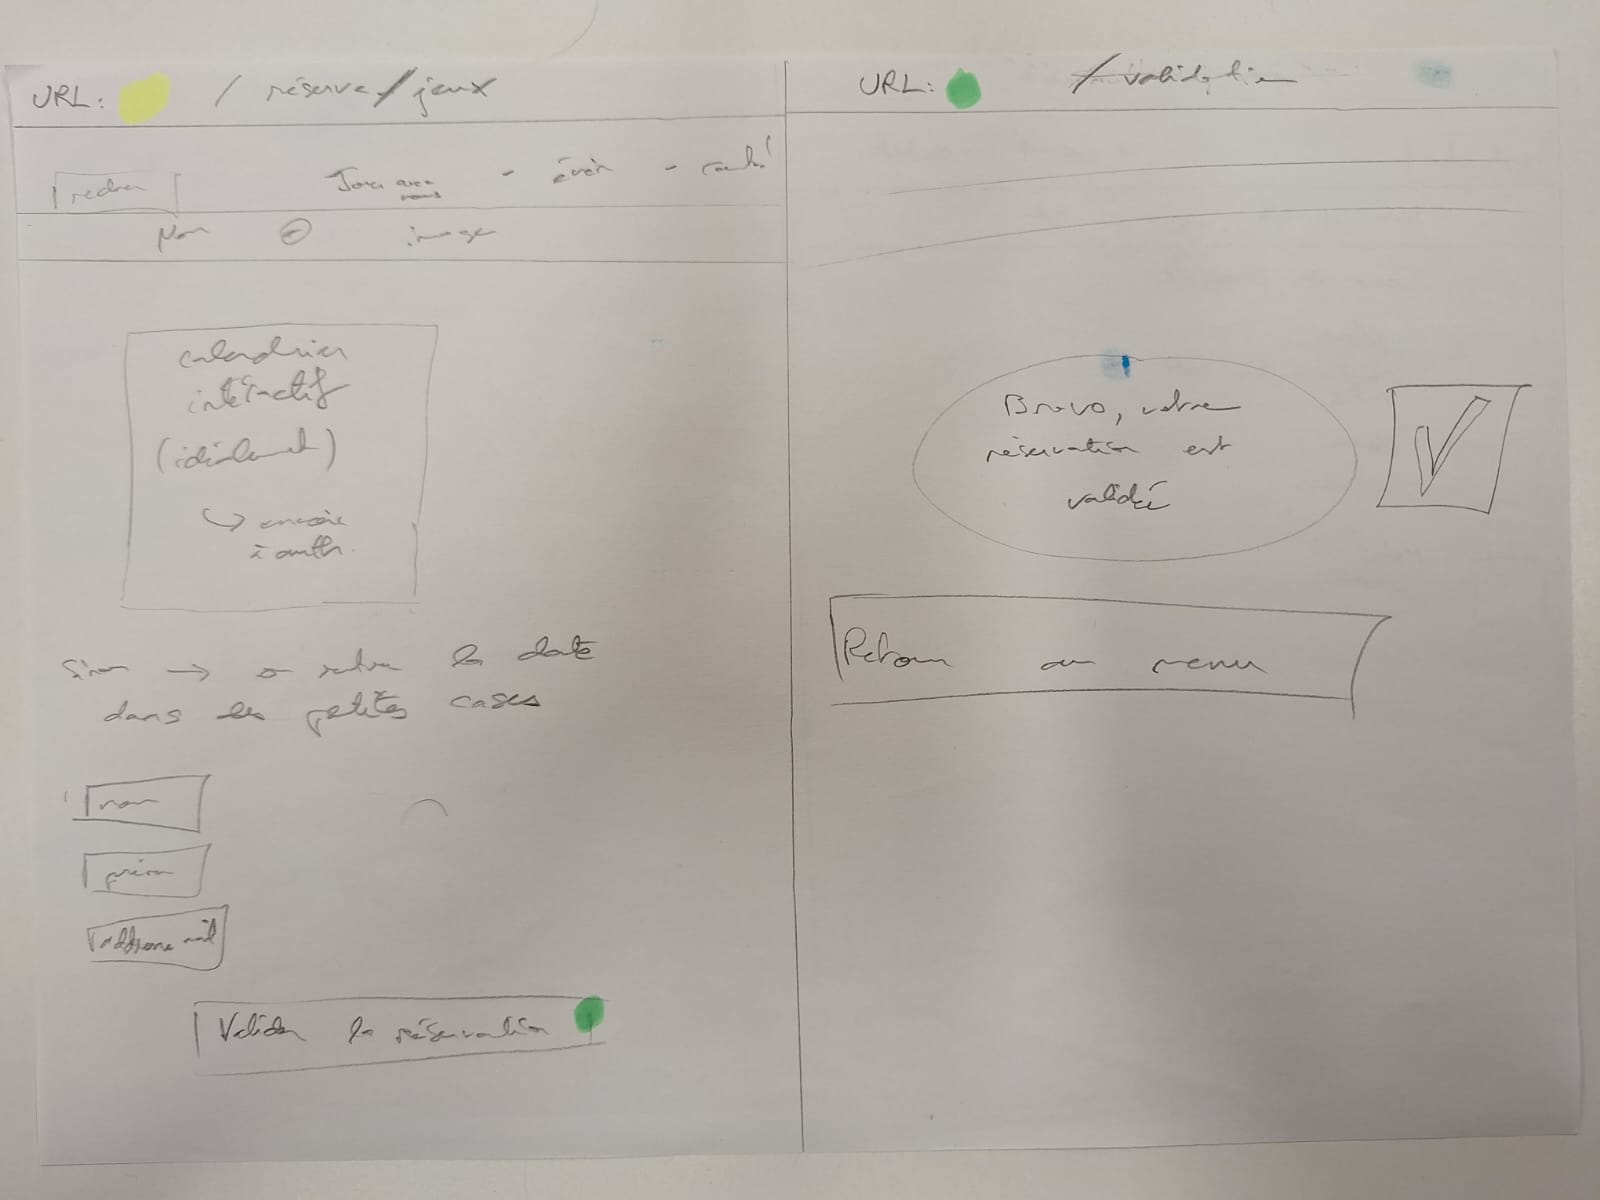 URL: / réserve/jeux
Jouer avec nous - évén -
Nom image
calendrier
intéractif
(idéalement)
Sinon → on rentre la date
dans les petites cases
nom
prénom
addresse mail
Valider la réservation
URL: /validation
Bravo, votre
réservation est
validé
Retour au menu